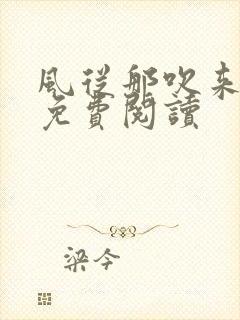 風從那吹来
免費閱讀
梁今